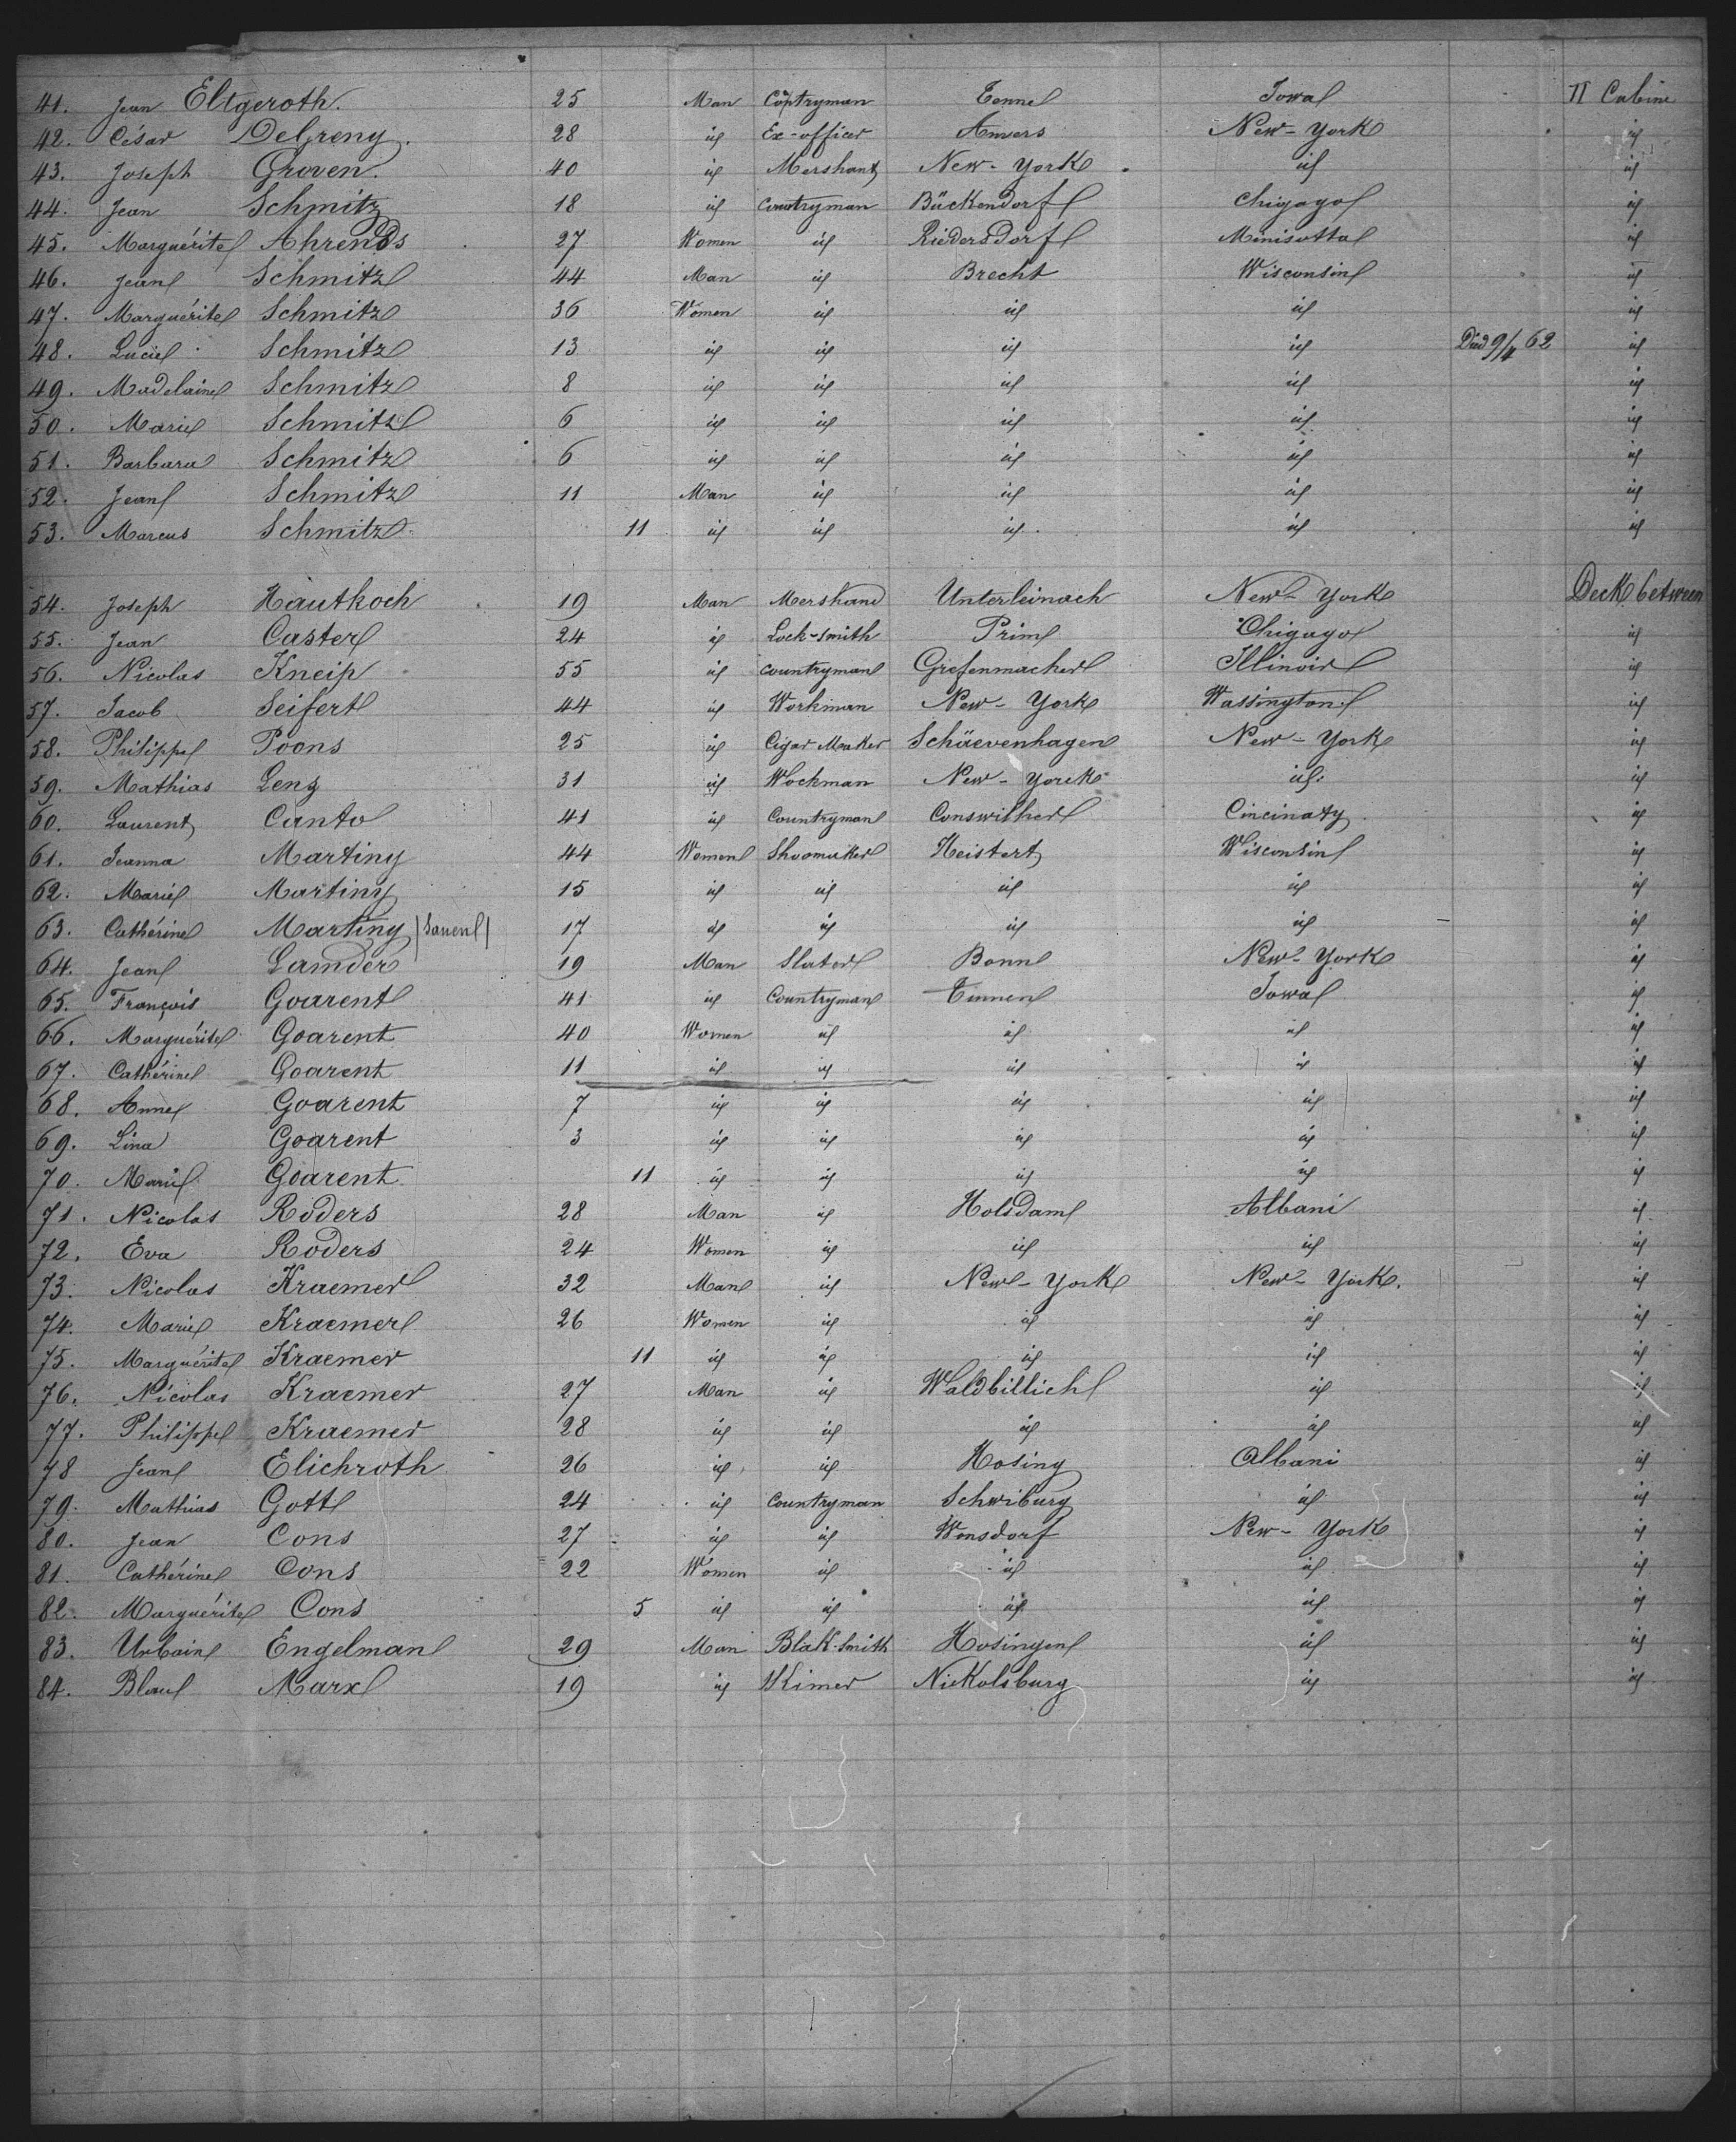 41. Jean Eltgeroth. 25 Man Coptryman Tennel Iowa II Cabine
42. César DeGreny. 28 id Ex-officer Anvers New-York id
43. Joseph Groven. 40 id Mershant New-York id id
44. Jean Schmitz 18 id Countryman Bückendorf Chigago id
45. Marguérite Ahrends 27 Women id Riedersdorf Minisotta id
46. Jean Schmitz 44 Man id Brecht Wisconsin id
47. Marguérite Schmitz 36 Women id id id id
48. Lucie Schmitz 13 id id id id Died 9/4 62 id
49. Madelaine Schmitz 8 id id id id id
50. Marie Schmitz 6 id id id id id
51. Barbara Schmitz 6 id id id id id
52. Jean Schmitz 11 Man id id id id
53. Marcus Schmitz 11 id id id id id
54. Joseph Hautkoch 19 Man Mershand Unterleinach New-York Deck between
55. Jean Caster 24 id Lock-smith Prim Chigago id
56. Nicolas Kneip 55 id countryman Grefenmacher Illinoir id
57. Jacob Seifert 44 id Workman New-York Wassington id
58. Philippe Poons 25 id Cigar Maker Schäevenhagen New-York id
59. Mathias Leng 31 id Wockman New-Yorck id. id
60. Laurent Canto 41 id Countryman Conswilher Cincinaty id
61. Jeanna Martiny 44 Women Shoomaker Heistert Wisconsin id
62. Marie Martiny 15 id id id id id
63. Cathérine Martiny (Sauen) 17 id id id id id
64. Jean Lamder 19 Man Slater Bonn New-York id
65. François Goarent 41 id Countryman Tinnen Iowa id
66. Marguérite Goarent 40 Women id id id id
67. Cathérine Goarent 11 id id id id id
68. Anne Goarent 7 id id id id id
69. Lina Goarent 3 id id id id id
70. Marie Goarent 11 id id id id id
71. Nicolas Roders 28 Man id Holsdam Albani id
72. Eva Roders 24 Women id id id id
73. Nicolas Kraemer 32 Man id New-York New-York. id
74. Marie Kraemer 26 Women id id id id
75. Marguérite Kraemer 11 id id id id id
76. Nicolas Kraemer 27 Man id Waldbillich id id
77. Philippe Kraemer 28 id id id id id
78 Jean Elichroth 26 id id Hosing Albani id
79. Mathias Gott 24 id Countryman Schwiburg id id
80. Jean Cons 27 id id Wonsdorf New-York id
81. Cathérine Cons 22 Women id id id id
82. Marguérite Cons 5 id id id id id
83. Urbain Engelman 29 Man Blak-smith Hosingen id id
84. Blau Marx 19 id Kimer Nickolsburg id id